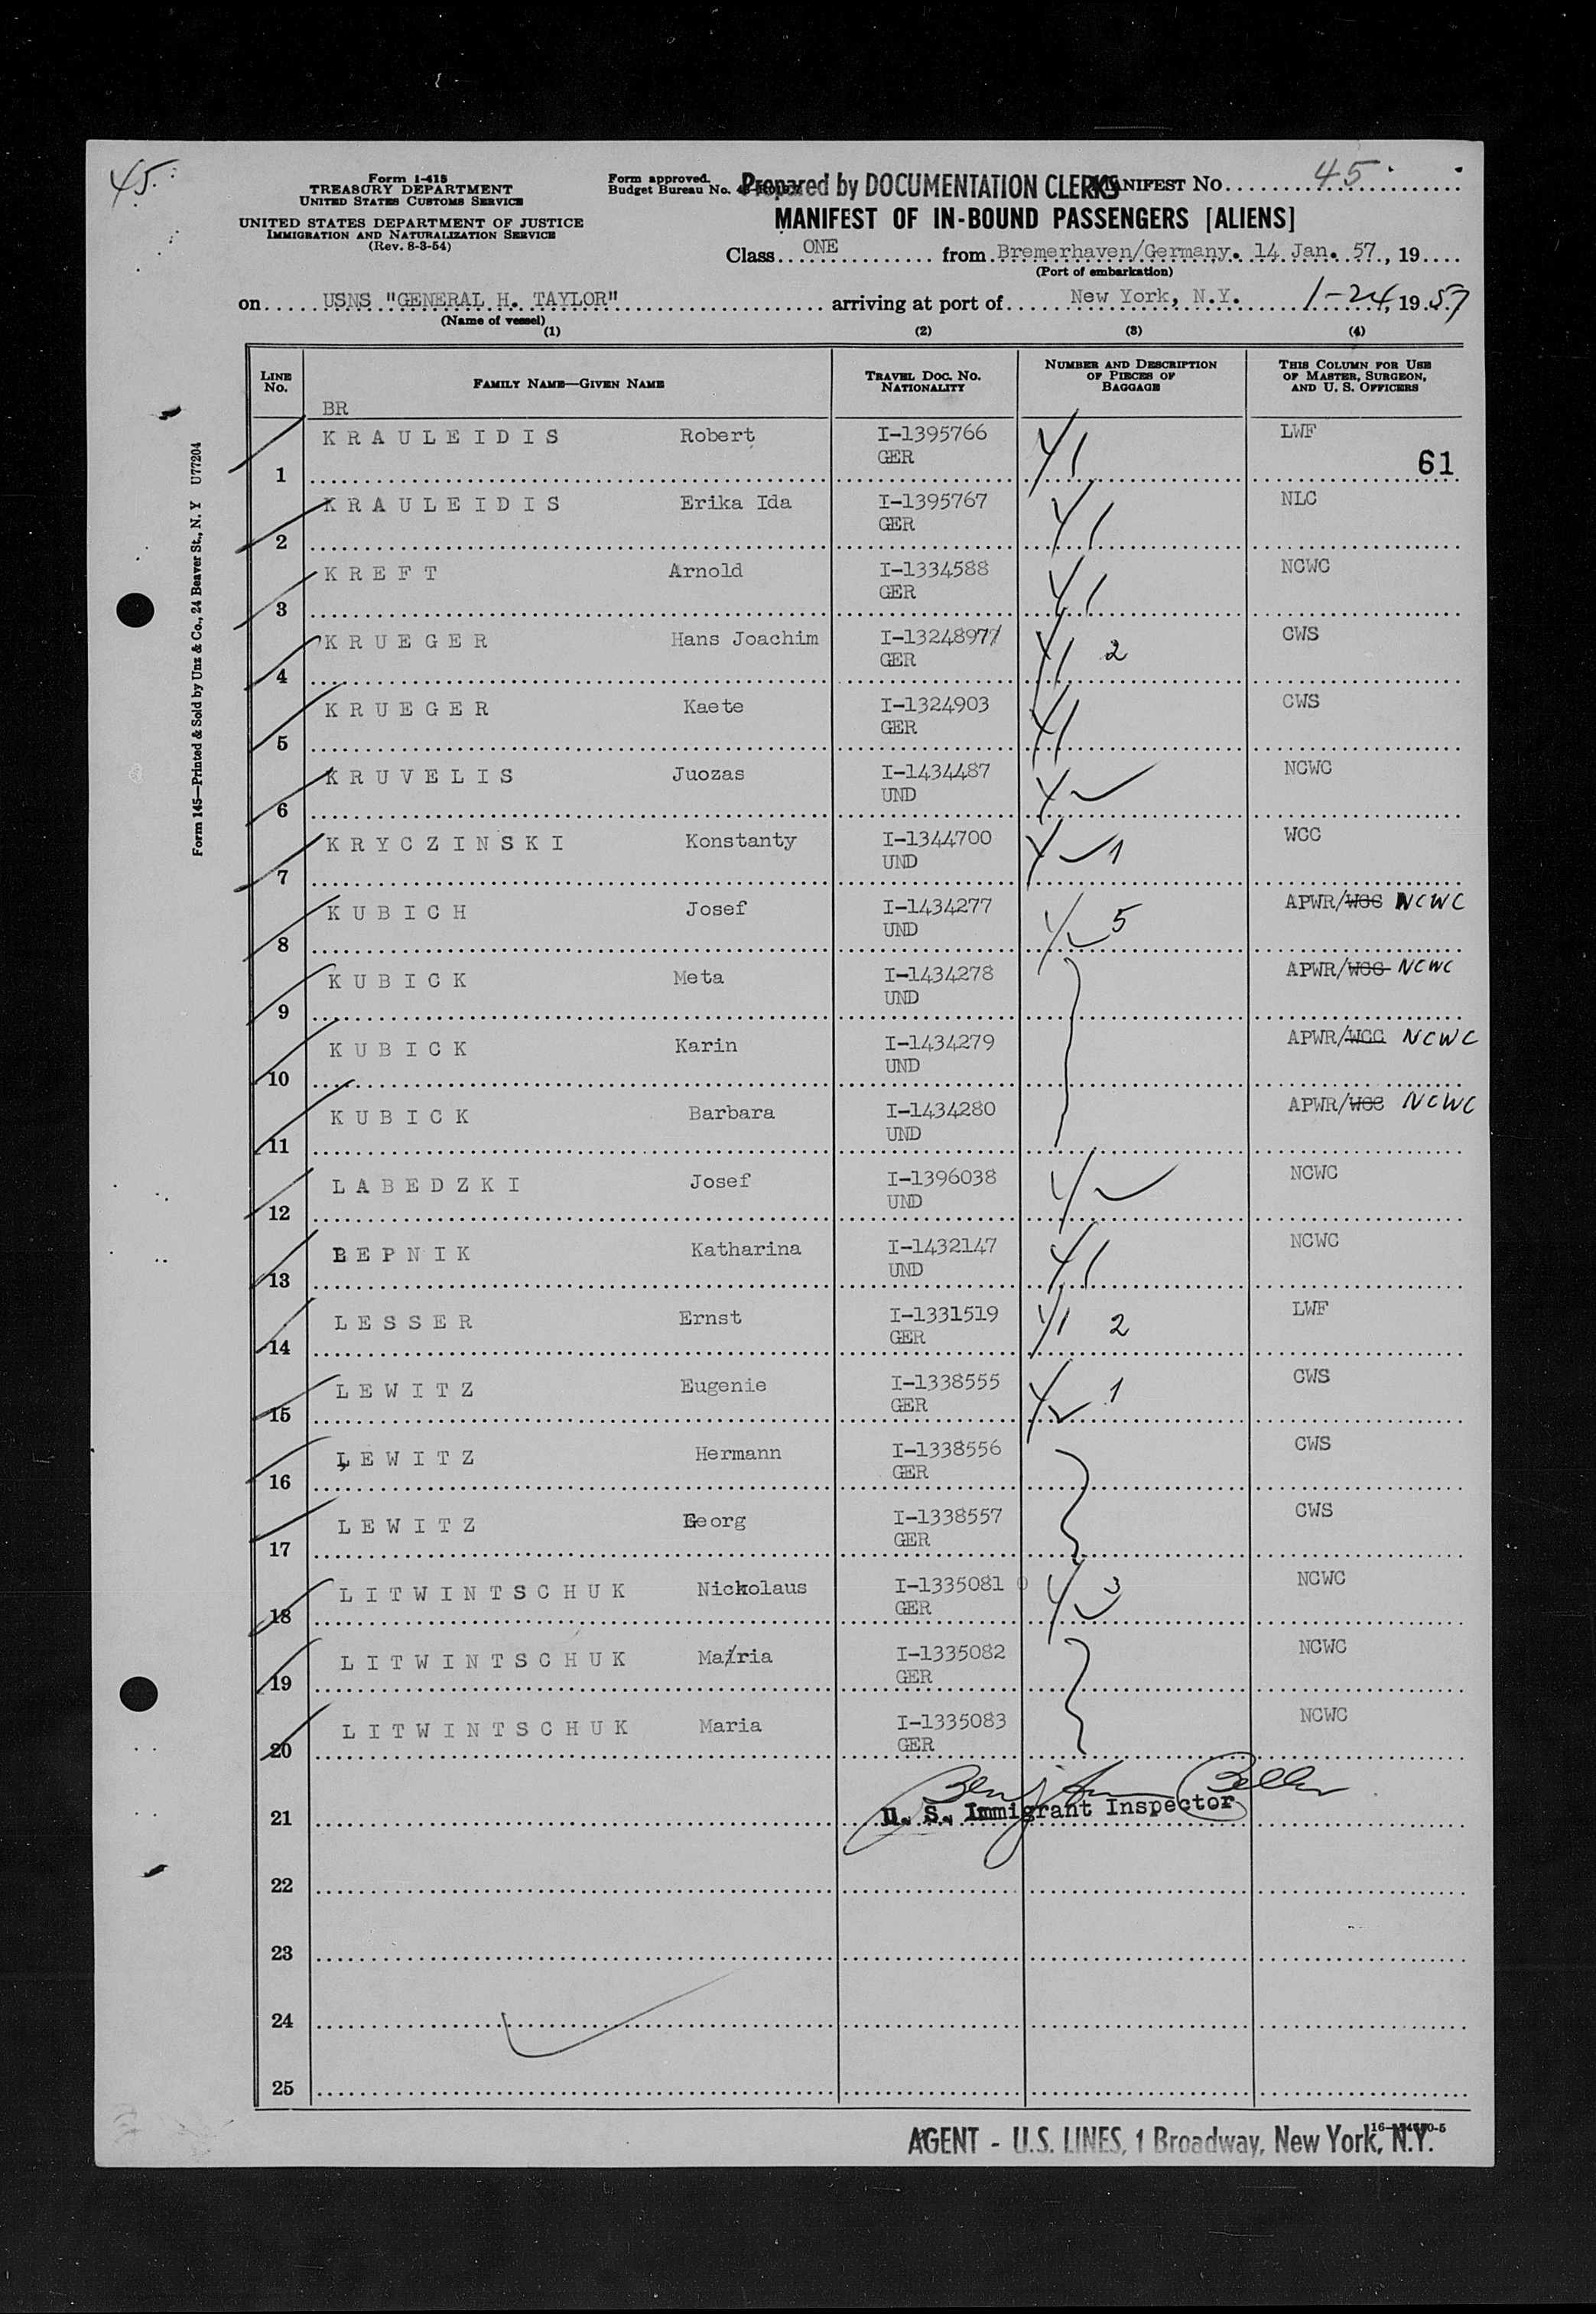 45.
Form I-418
TREASURY DEPARTMENT
UNITED STATES CUSTOMS SERVICE
UNITED STATES DEPARTMENT OF JUSTICE
IMMIGRATION AND NATURALIZATION SERVICE
(Rev. 8-3-54)
Form approved.
Budget Bureau No.
Prepared by DOCUMENTATION CLERKS
MANIFEST NO. 45
MANIFEST OF IN-BOUND PASSENGERS [ALIENS]
Class ONE from Bremerhaven/Germany. 14 Jan. 57, 19
(Port of embarkation)
on USNS "GENERAL H. TAYLOR" arriving at port of New York, N.Y. 1-24, 1957
(Name of vessel)
(1) (2) (3) (4)
LINE No. FAMILY NAME—GIVEN NAME TRAVEL DOC. NO. NATIONALITY NUMBER AND DESCRIPTION OF PIECES OF BAGGAGE THIS COLUMN FOR USE OF MASTER, SURGEON, AND U. S. OFFICERS
BR
1 KRAULEIDIS Robert I-1395766 GER 1 LWF 61
2 KRAULEIDIS Erika Ida I-1395767 GER 1 NLC
3 KREFT Arnold I-1334588 GER 1 NCWC
4 KRUEGER Hans Joachim I-1324897 GER 1 2 CWS
5 KRUEGER Kaete I-1324903 GER 1 CWS
6 KRUVELIS Juozas I-1434487 UND NCWC
7 KRYCZINSKI Konstanty I-1344700 UND 1 WCC
8 KUBICH Josef I-1434277 UND 5 APWR/WCC NCWC
9 KUBICK Meta I-1434278 UND APWR/WCC NCWC
10 KUBICK Karin I-1434279 UND APWR/WCC NCWC
11 KUBICK Barbara I-1434280 UND APWR/WCC NCWC
12 LABEDZKI Josef I-1396038 UND NCWC
13 LEPNIK Katharina I-1432147 UND 1 NCWC
14 LESSER Ernst I-1331519 GER 1 2 LWF
15 LEWITZ Eugenie I-1338555 GER 1 CWS
16 LEWITZ Hermann I-1338556 GER CWS
17 LEWITZ Georg I-1338557 GER CWS
18 LITWINTSCHUK Nickolaus I-1335081 GER 3 NCWC
19 LITWINTSCHUK Maria I-1335082 GER NCWC
20 LITWINTSCHUK Maria I-1335083 GER NCWC
21 U. S. Immigrant Inspector
22
23
24
25
AGENT - U.S. LINES, 1 Broadway, New York, N.Y.
Form 145—Printed & Sold by Unz & Co., 24 Beaver St., N. Y U77204